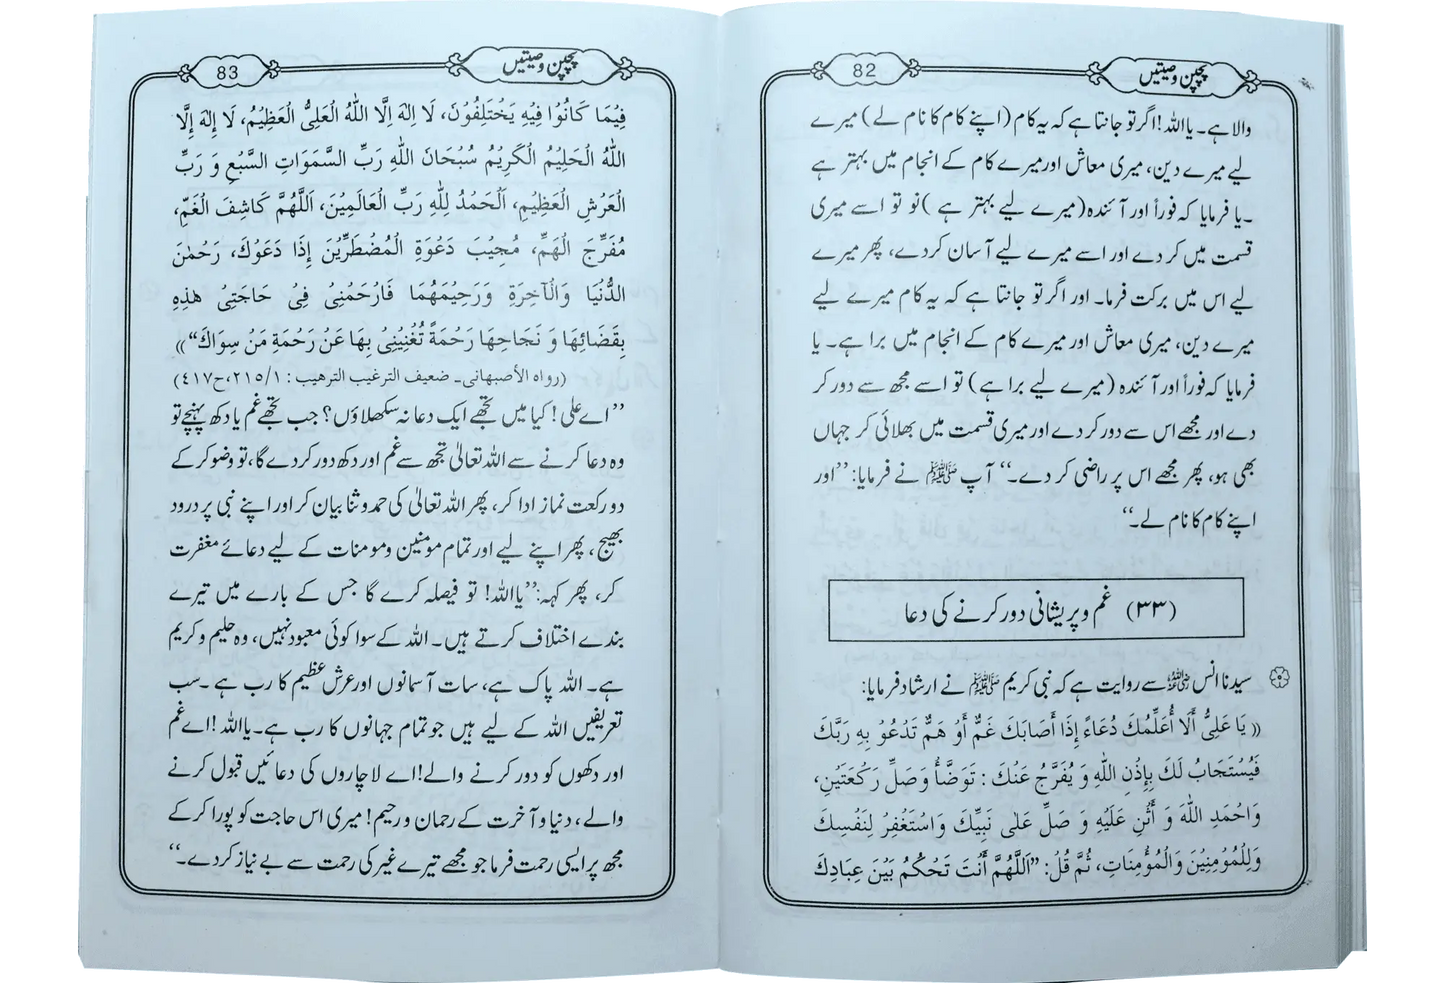 پچپن وصیتیں
82
والا ہے۔ یا اللہ! اگر تو جانتا ہے کہ یہ کام (اپنے کام کا نام لے) میرے
لیے میرے دین، میری معاش اور میرے کام کے انجام میں بہتر ہے
۔ یا فرمایا کہ فوراً اور آئندہ (میرے لیے بہتر ہے ) تو تو اسے میری
قسمت میں کر دے اور اسے میرے لیے آسان کر دے، پھر میرے
لیے اس میں برکت فرما۔ اور اگر تو جانتا ہے کہ یہ کام میرے لیے
میرے دین، میری معاش اور میرے کام کے انجام میں برا ہے۔ یا
فرمایا کہ فوراً اور آئندہ (میرے لیے برا ہے) تو اسے مجھ سے دور کر
دے اور مجھے اس سے دور کر دے اور میری قسمت میں بھلائی کر جہاں
بھی ہو، پھر مجھے اس پر راضی کر دے۔‘‘ آپ ﷺ نے فرمایا: ’’اور
اپنے کام کا نام لے۔‘‘
(۳۳) غم و پریشانی دور کرنے کی دعا
سیدنا انس رضی اللہ عنہ سے روایت ہے کہ نبی کریم ﷺ نے ارشاد فرمایا:
(( يَا عَلِىُّ أَلَا أُعَلِّمُكَ دُعَاءً إِذَا أَصَابَكَ غَمٌّ أَوْ هَمٌّ تَدْعُوْ بِهِ رَبَّكَ
فَيُسْتَجَابُ لَكَ بِإِذْنِ اللّٰهِ وَ يُفَرَّجُ عَنْكَ : تَوَضَّأْ وَصَلِّ رَكْعَتَيْنِ،
وَاحْمَدِ اللّٰهَ وَ أَثْنِ عَلَيْهِ وَ صَلِّ عَلٰى نَبِيِّكَ وَاسْتَغْفِرْ لِنَفْسِكَ
وَلِلْمُؤْمِنِيْنَ وَالْمُؤْمِنَاتِ، ثُمَّ قُلْ: ’’اَللّٰهُمَّ أَنْتَ تَحْكُمُ بَيْنَ عِبَادِكَ
پچپن وصیتیں
83
فِيْمَا كَانُوْا فِيْهِ يَخْتَلِفُوْنَ، لَا اِلٰهَ اِلَّا اللّٰهُ الْعَلِىُّ الْعَظِيْمُ، لَا إِلٰهَ إِلَّا
اللّٰهُ الْحَلِيْمُ الْكَرِيْمُ سُبْحَانَ اللّٰهِ رَبِّ السَّمَوَاتِ السَّبْعِ وَ رَبِّ
الْعَرْشِ الْعَظِيْمِ، اَلْحَمْدُ لِلّٰهِ رَبِّ الْعَالَمِيْنَ، اَللّٰهُمَّ كَاشِفَ الْغَمِّ،
مُفَرِّجَ الْهَمِّ، مُجِيْبَ دَعْوَةِ الْمُضْطَرِّيْنَ إِذَا دَعَوْكَ، رَحْمٰنَ
الدُّنْيَا وَالْآخِرَةِ وَرَحِيْمَهُمَا فَارْحَمْنِىْ فِىْ حَاجَتِىْ هٰذِهِ
بِقَضَائِهَا وَ نَجَاحِهَا رَحْمَةً تُغْنِيْنِىْ بِهَا عَنْ رَحْمَةِ مَنْ سِوَاكَ‘‘))
(رواه الأصبهانى۔ ضعيف الترغيب الترهيب : ٢١٥/١،ح٤١٧)
’’اے علی! کیا میں تجھے ایک دعا نہ سکھلاؤں؟ جب تجھے غم یا دکھ پہنچے تو
وہ دعا کرنے سے اللہ تعالیٰ تجھ سے غم اور دکھ دور کر دے گا، تو وضو کر کے
دو رکعت نماز ادا کر، پھر اللہ تعالیٰ کی حمد و ثنا بیان کر اور اپنے نبی پر درود
بھیج، پھر اپنے لیے اور تمام مومنین و مومنات کے لیے دعائے مغفرت
کر، پھر کہہ: ’’یا اللہ! تو فیصلہ کرے گا جس کے بارے میں تیرے
بندے اختلاف کرتے ہیں۔ اللہ کے سوا کوئی معبود نہیں، وہ حلیم و کریم
ہے۔ اللہ پاک ہے، سات آسمانوں اور عرش عظیم کا رب ہے ۔سب
تعریفیں اللہ کے لیے ہیں جو تمام جہانوں کا رب ہے۔ یا اللہ! اے غم
اور دکھوں کو دور کرنے والے! اے لاچاروں کی دعائیں قبول کرنے
والے، دنیا و آخرت کے رحمان و رحیم! میری اس حاجت کو پورا کر کے
مجھ پر ایسی رحمت فرما جو مجھے تیرے غیر کی رحمت سے بے نیاز کر دے۔‘‘